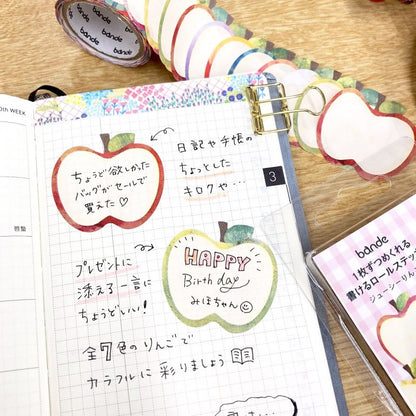 bande
bande
bande
bande
0th WEEK
日記や手帳の
ちょっとした
キロクや…
ちょうど欲しかった
バッグがセールで
買えた♡
3
HAPPY
Birthday
みほちゃん
プレゼントに
添える一言に
ちょうどいい!
全7色のりんごで
カラフルに彩りましょう
bande
1枚ずつめくれる
書けるロールステッ
ジューシーりん